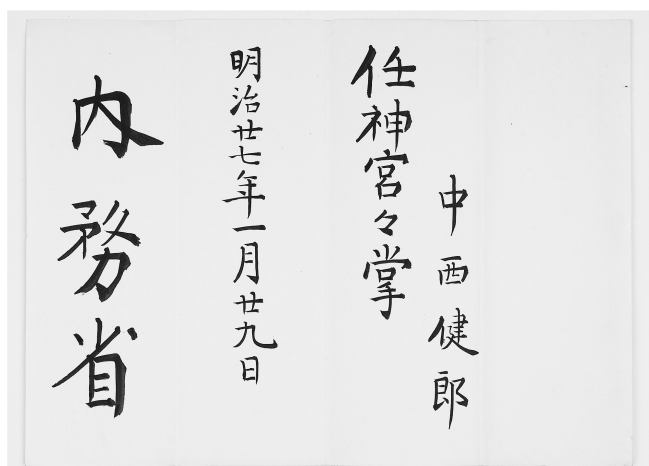 中西健郎
任神宮々掌
明治廿七年一月廿九日
内務省